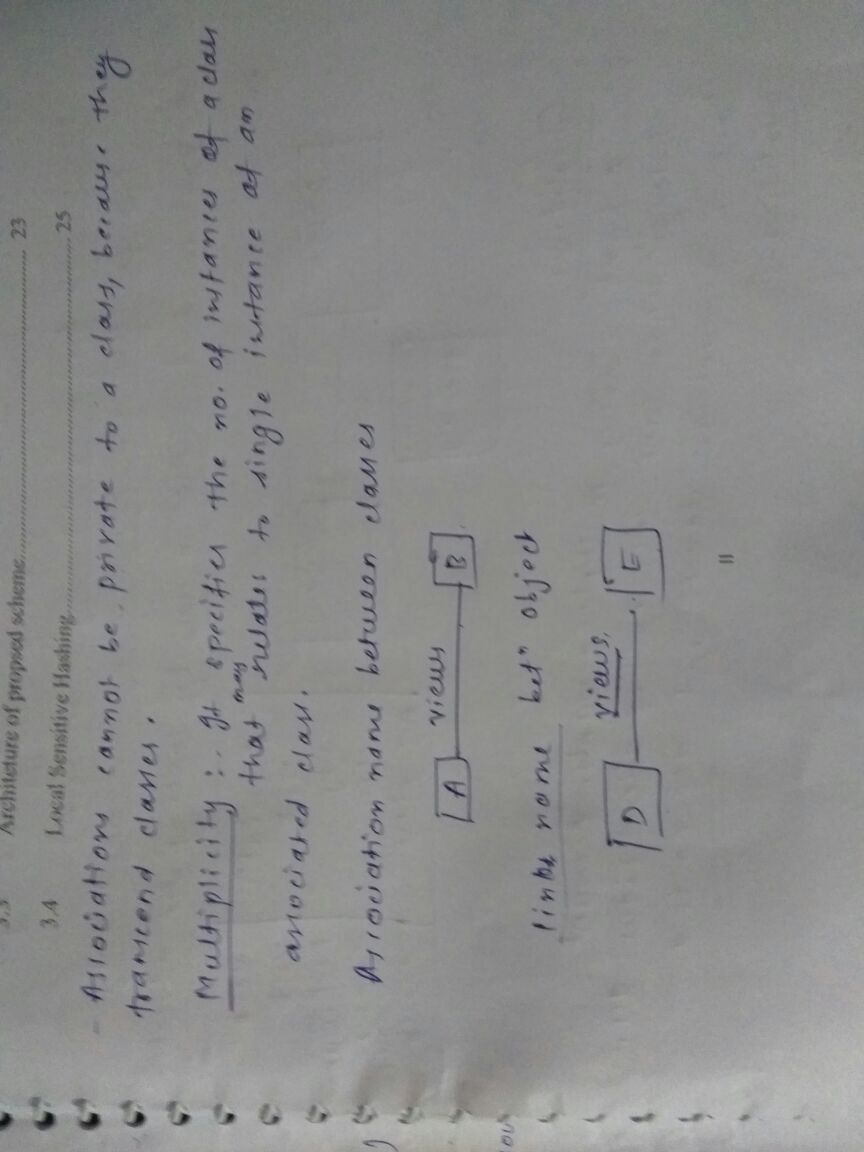 Architeture of propsed scheme........................ 23
3.4 Local Sensitive Hashing........................ 25
- Associations cannot be private to a class, because they
transcend classes.
Multiplicity :- It specifies the no. of instances of a class
that may relates to single instance of an
associated class.
Association name between classes
views
A B
links name betn object
views
D E
II